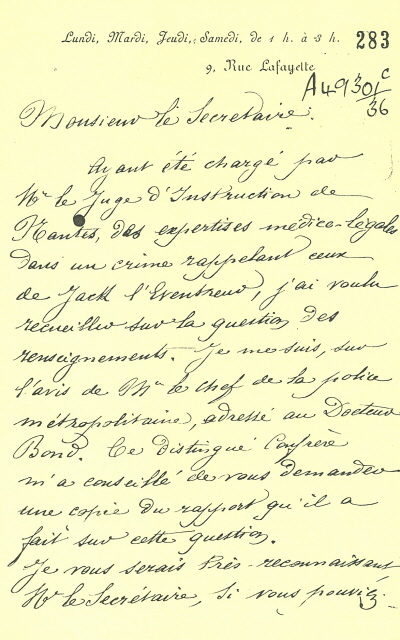 Lundi, Mardi, Jeudi, Samedi, de 1 h. à 3 h.
283
9, Rue Lafayette
A49301C
36
Monsieur le Secrétaire.
Ayant été chargé par
Mr le Juge d'Instruction de
Nantes, des expertises médico-légales
dans un crime rappelant ceux
de Jack l'Eventreur, j'ai voulu
recueillir sur la question des
renseignements. Je me suis, sur
l'avis de Mr le chef de la police
métropolitaine, adressé au Docteur
Bond. Ce distingué Confrère
m'a conseillé de vous demander
une copie du rapport qu'il a
fait sur cette question.
Je vous serais très-reconnaissant
Mr le Secrétaire, si vous pouviez